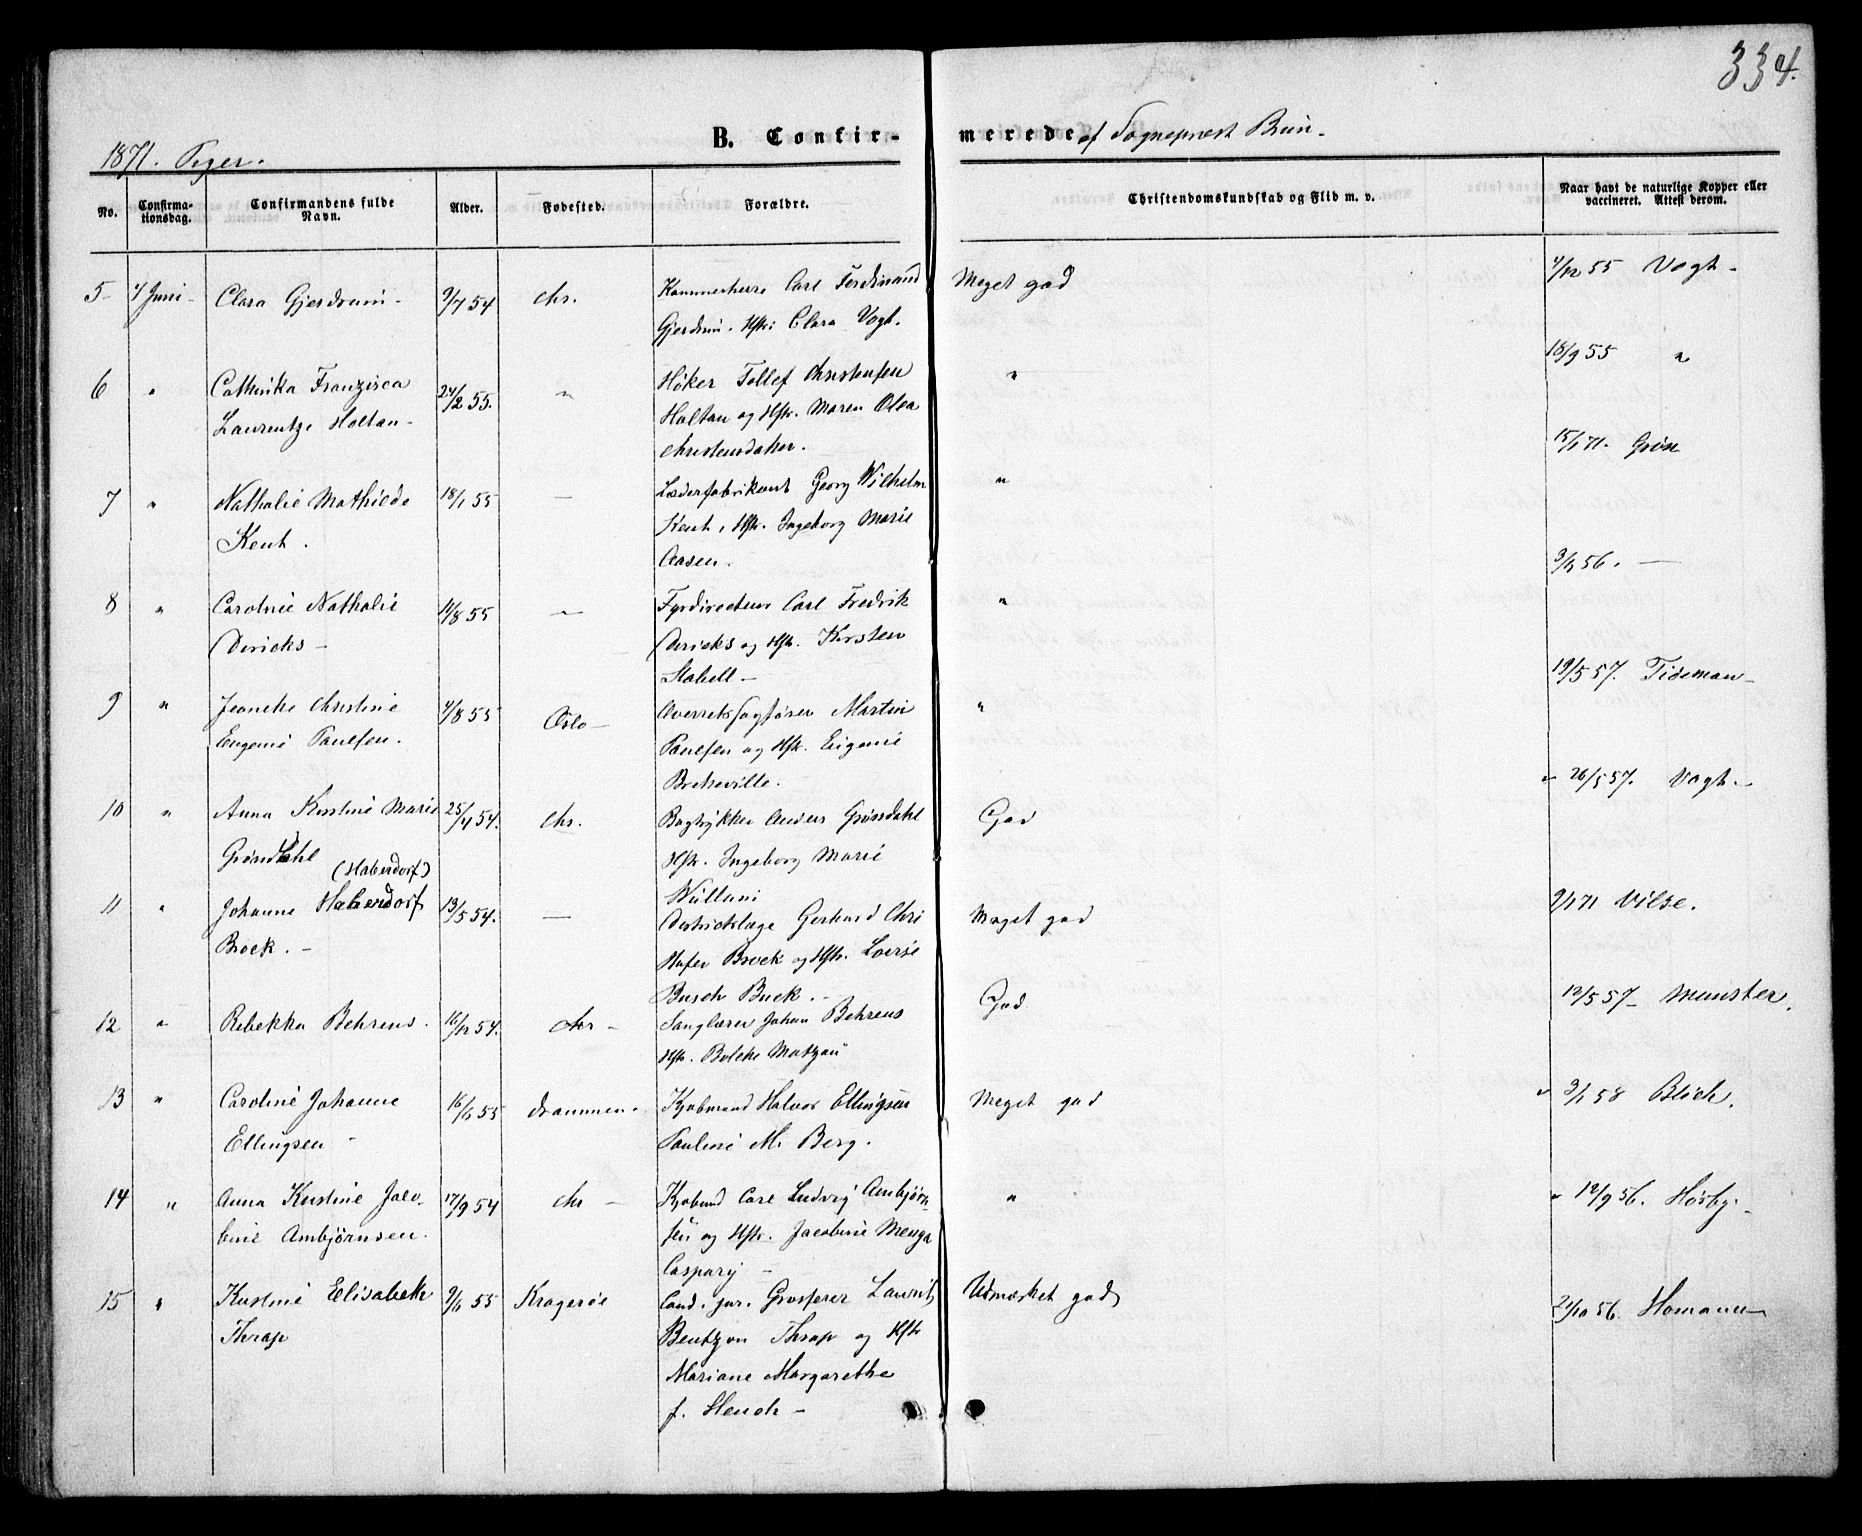 334.
1871. Piger.
B. Confir-
merede af Sognepræst Bun.
No.
Confirma-
tionsdag.
Confirmandens fulde
Navn.
Alder.
Fødested.
Forældre.
Christendomskundskab og Flid m. v.
Naar havt de naturlige Kopper eller
vaccineret. Attest derom.
5 4 Juni Clara Gjerdrum 9/7 54 Chr. Kammerherre Carl Ferdinand Meget god 4/12 55 Vogt
Gjerdrum. Hstr: Clara Vogt.
6 " Cathinka Franzisca 24/2 55. " Høker Tollef Christensen " 18/9 55 "
Laurentze Holtan Holtan og Hstr. Maren Olea
Christensdatter.
7 " Nathalie Mathilde 18/1 55 — Læderfabrikant Georg Wilhelm " 15/1 71. Grøn
Kent. Kent, Hstr. Ingeborg Marie
Aasen.
8 " Caroline Nathalie 11/8 55 — Fyrdirecteur Carl Fredrik " 56. —
Diricks Diricks og Hstr. Kirsten
Stabell
9 " Jeanette Christine 4/8 55 Oslo Overretssagfører Martin " 19/5 57. Tidemann
Eugenie Paulsen. Paulsen og Hstr. Eugenie
10 " Anna Kirstine Marie 25/4 54. Chr. Bogtrykker Anders Grøndahl God 26/5 57. Vogt
Grøndahl Hstr. Ingeborg Marie
(Haberdorf)
11 " Johanne Haberdorf 13/5 54. — Districtslæge Gerhard Chri Meget god 9/1 71 Vilse.
Brock. stofer Brock og Hstr. Lovise
Busch Buck.
12 " Rebekka Behrens. 16/12 54. Chr Sanglærer Johan Behrens God 12/5 57 Munster.
Hstr. Bolette Matzau
13 " Caroline Johanne 16/1 55 Drammen Kjøbmand Halvor Ellingsen Meget god 3/1 58 Blich.
Ellingsen Pauline M. Berg.
14 " Anna Kirstine Jaco- 17/9 54 Chr Kjøbmd Carl Ludvig Ambjørn- " 12/9 56. Hørby
bine Ambjørnsen. sen og Hstr. Jacobine Menga
Caspary
15 " Kirstine Elisabeth 9/1 55 Kragerøe Cand. jur. Grosserer Laurits Udmærket god 21/10 56. Homann
Thrap Bentzon Thrap og Hstr
Mariane Margarethe
f. Heuch